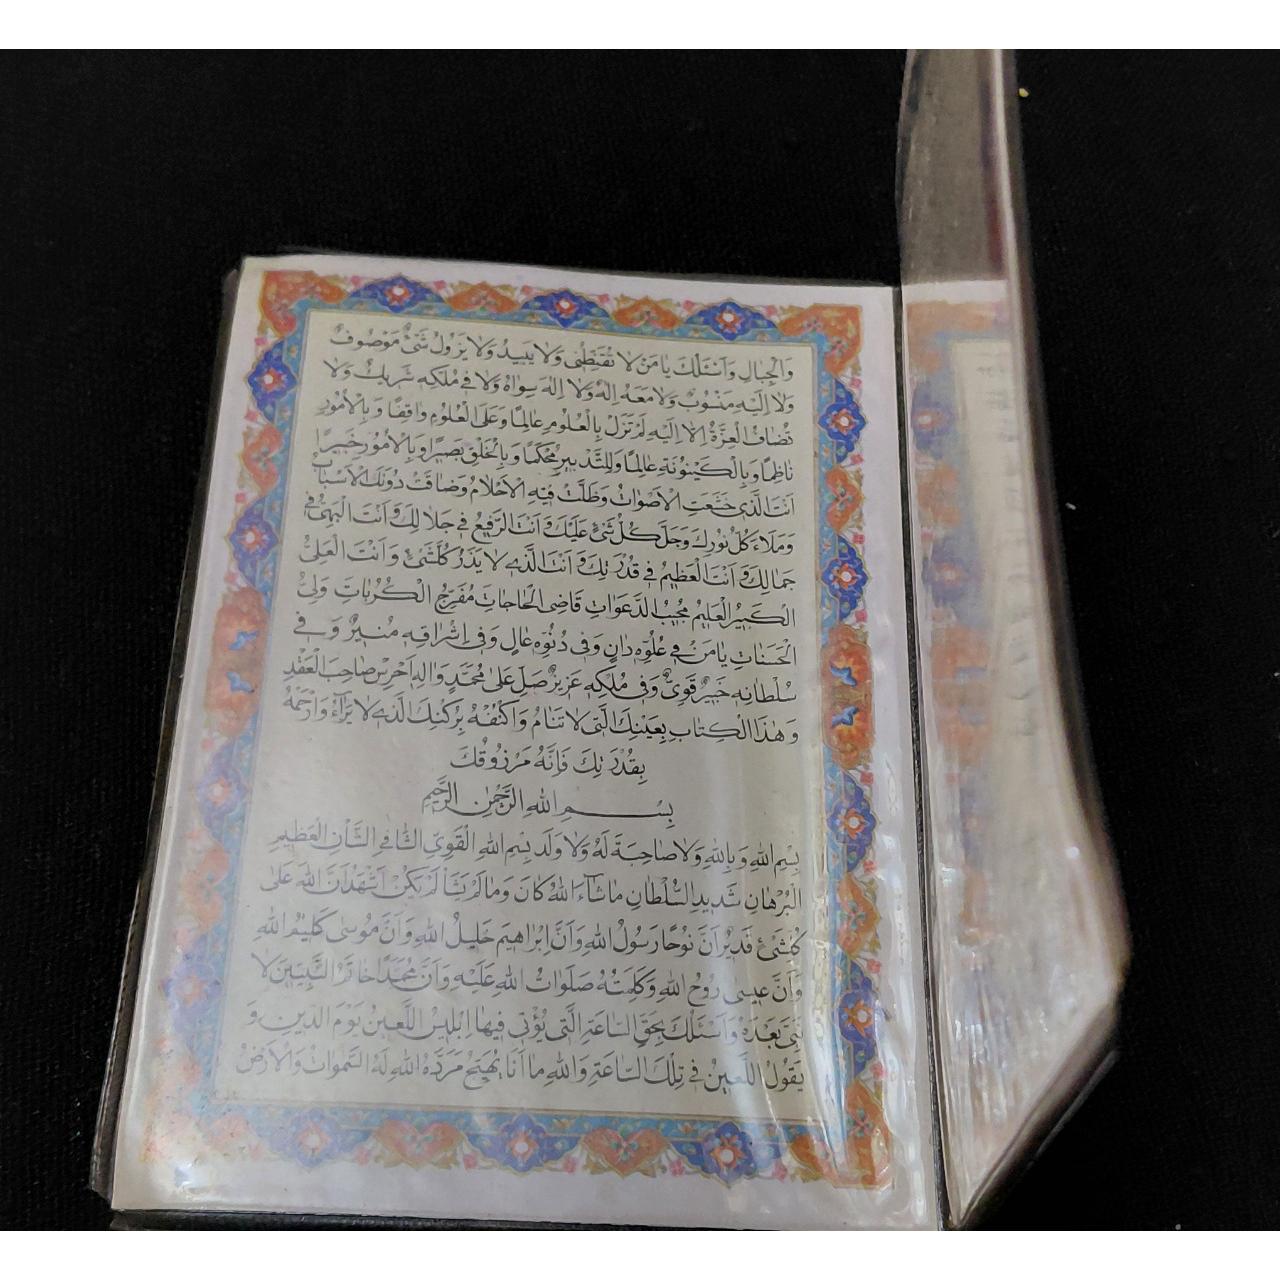 وَالْجِبَالِ وَاَسْئَلُكَ يٰا مَنْ لٰا تُقَنِّطُنى وَلٰا يَبيدُ وَلٰا يَزُولُ شَىْءٌ مَوْصُوفٌ
وَلٰا اِلَيْهِ مَنْسُوبٌ وَلٰا مَعَهُ اِلٰهٌ وَلٰا اِلٰهَ سِوٰاهُ وَلٰا فى مُلْكِهِ شَريكٌ وَلٰا
تُضٰافُ الْعِزَّةُ اِلّٰا اِلَيْهِ لَمْ تَزَلْ بِالْعُلُومِ عٰالِمًا وَعَلَى الْعُلُومِ وٰاقِفًا وَبِالْاُمُورِ
نٰاظِمًا وَبِالْكَيْنُونَةِ عٰالِمًا وَلِلتَّدْبيرِ مُحْكِمًا وَبِالْخَلْقِ بَصيرًا وَبِالْاُمُورِ خَبيرًا
اَنْتَ الَّذى خَشَعَتِ الْاَصْوٰاتُ وَضَلَّتْ فيهِ الْاَحْلٰامُ وَضٰاقَتْ دُونَكَ الْاَسْبٰابُ
وَمَلَاءَ كُلَّ نُورُكَ وَجَلَّ كُلُّ شَىْءٍ عَلَيْكَ وَ اَنْتَ الرَّفيعُ فى جَلٰالِكَ وَ اَنْتَ الْبَهِىُّ فى
جَمٰالِكَ وَ اَنْتَ الْعَظيمُ فى قُدْرَتِكَ وَ اَنْتَ الَّذى لٰا يَذَرُ كُلَّشَىْءٍ وَ اَنْتَ الْعَلِىُّ
الْكَبيرُ الْعَليمُ مُجيبُ الدَّعَوٰاتِ قٰاضِى الْحٰاجٰاتِ مُفَرِّجُ الْكُرُبٰاتِ وَلِىُّ
الْحَسَنٰاتِ يٰا مَنْ فى عُلُوِّهِ دٰانٍ وَفى دُنُوِّهِ عٰالٍ وَفى اِشْرٰاقِهِ مُنيرٌ وَ فى
سُلْطٰانِهِ خَبيرٌ قَوِىٌّ وَفى مُلْكِهِ عَزيزٌ صَلِّ عَلىٰ مُحَمَّدٍ وَ اٰلِهِ اَحْرِسْ صٰاحِبَ الْعَقْدِ
وَ هٰذَا الْكِتٰابِ بِعَيْنِكَ الَّتى لٰا تَنٰامُ وَ اكْنُفْهُ بِرُكْنِكَ الَّذى لٰا يُرٰامُ وَارْحَمْهُ
بِقُدْرَتِكَ فَاِنَّهُ مَرْزُوقُكَ
بِسْمِ اللّٰهِ الرَّحْمٰنِ الرَّحيمِ
بِسْمِ اللّٰهِ وَ بِاللّٰهِ وَلٰا صٰاحِبَةَ لَهُ وَلٰا وَلَد بِسْمِ اللّٰهِ الْقَوِىِّ الشّٰافِى الشَّأْنِ الْعَظيمِ
الْبُرْهٰانِ شَديدِ السُّلْطٰانِ مٰا شٰآءَ اللّٰهُ كٰانَ وَ مٰا لَمْ يَشَأْ لَمْ يَكُنْ اَشْهَدُ اَنَّ اللّٰهَ عَلىٰ
كُلِّشَىْءٍ قَديرٌ اَنَّ نُوحًا رَسُولُ اللّٰهِ وَاَنَّ اِبْرٰاهيمَ خَليلُ اللّٰهِ وَ اَنَّ مُوسىٰ كَليمُ اللّٰهِ
وَ اَنَّ عيسى رُوحُ اللّٰهِ وَ كَلِمَتُهُ صَلَوٰاتُ اللّٰهِ عَلَيْهِ وَ اَنَّ مُحَمَّدًا خٰاتَمُ النَّبِيّينَ لٰا
نَبِىَّ بَعْدَهُ وَ اَسْئَلُكَ بِحَقِّ السّٰاعَةِ الَّتى يُؤْتىٰ فيهٰا اِبْليسُ اللَّعينُ يَوْمَ الدّينِ وَ
يَقُولُ اللَّعينُ فى تِلْكَ السّٰاعَةِ وَاللّٰهِ مٰا اَنَا يُهَيِّجُ مَرَدَةُ اللّٰهِ لَهُ السَّمٰوٰاتُ وَ الْاَرْضُ